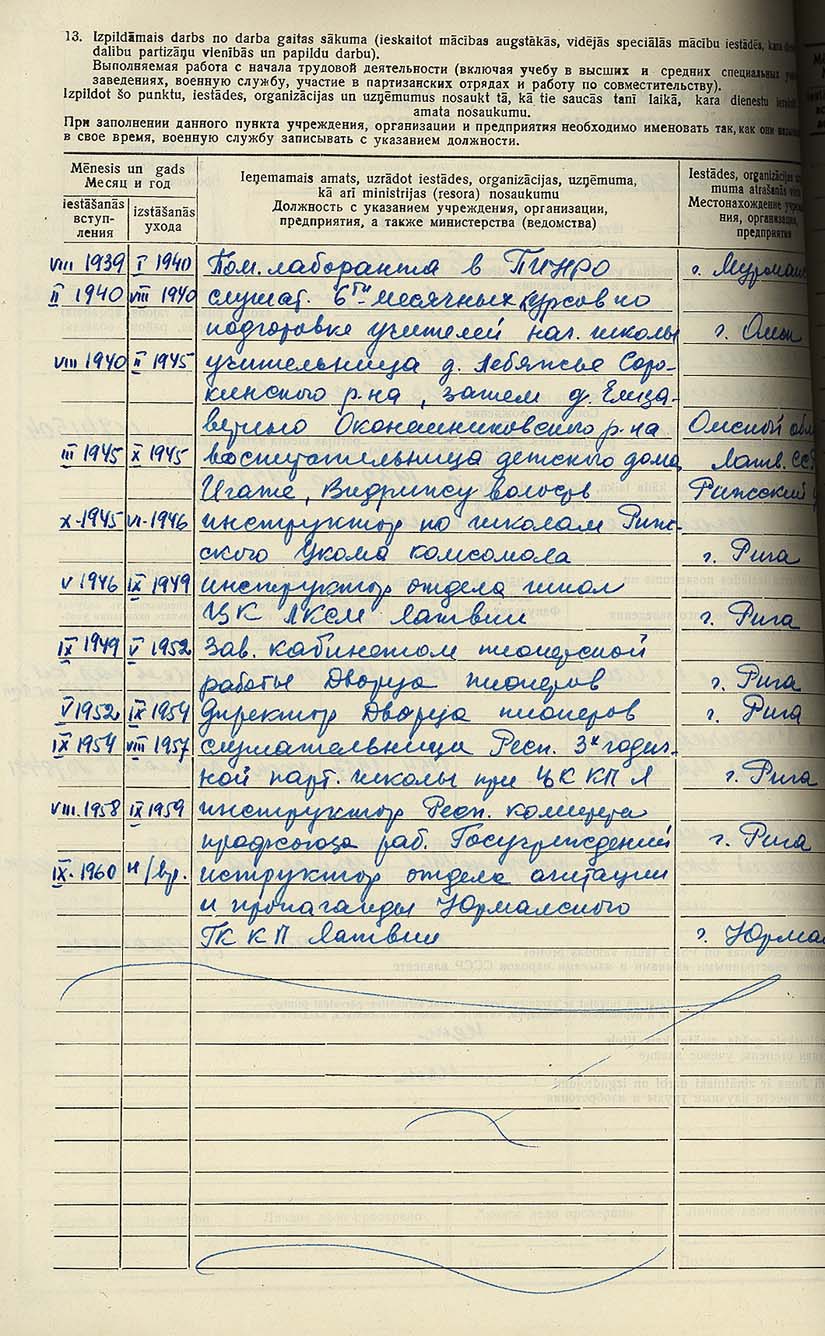 13. Izpildāmais darbs no darba gaitas sākuma (ieskaitot mācības augstākās, vidējās speciālās mācību iestādēs, kara
dalību partizāņu vienībās un papildu darbu).
Выполняемая работа с начала трудовой деятельности (включая учебу в высших и средних специальных
заведениях, военную службу, участие в партизанских отрядах и работу по совместительству).
Izpildot šo punktu, iestādes, organizācijas un uzņēmumus nosaukt tā, kā tie saucās tanī laikā, kara dienestu
amata nosaukumu.
При заполнении данного пункта учреждения, организации и предприятия необходимо именовать так, как они
в свое время, военную службу записывать с указанием должности.
Mēnesis un gads
Месяц и год
iestāšanās
вступ-
ления
izstāšanās
ухода
Ieņemamais amats, uzrādot iestādes, organizācijas, uzņēmuma,
kā arī ministrijas (resora) nosaukumu
Должность с указанием учреждения, организации,
предприятия, а также министерства (ведомства)
Iestādes, organizācijas
muma atrašanās
Местонахождение
ния, организации,
предприятия
VIII 1939 I 1940 Пом. лаборанта в ПИНРО г. Мурманс
II 1940 VIII 1940 слушат. 6ти месячных курсов по
подготовке учителей нач. школы г. Омск
VIII 1940 II 1945 учительница д. Лебяжье Соро-
кинского р-на, затем д. Елиза-
ветино Оконешниковского р-на Омской обл
III 1945 X 1945 воспитательница детского дома Латв. ССР
Игате, Видрижсу волость Рижский у
X-1945 VI-1946 инструктор по школам Риж-
ского Укома комсомола г. Рига
V 1946 IX 1949 инструктор отдела школ
ЦК ЛКСМ Латвии г. Рига
IX 1949 V 1952 Зав. кабинетом пионерской
работы Дворца пионеров г. Рига
V 1952 IX 1954 директор Дворца пионеров г. Рига
IX 1954 VIII 1957 слушательница Респ. 3х годич-
ной парт. школы при ЦК КП Л г. Рига
VIII. 1958 IX 1959 инструктор Респ. комитета
профсоюза раб. Госучреждений г. Рига
IX. 1960 н/вр. иструктор отдела агитации
и пропаганды Юрмалского
ГК КП Латвии г. Юрмал